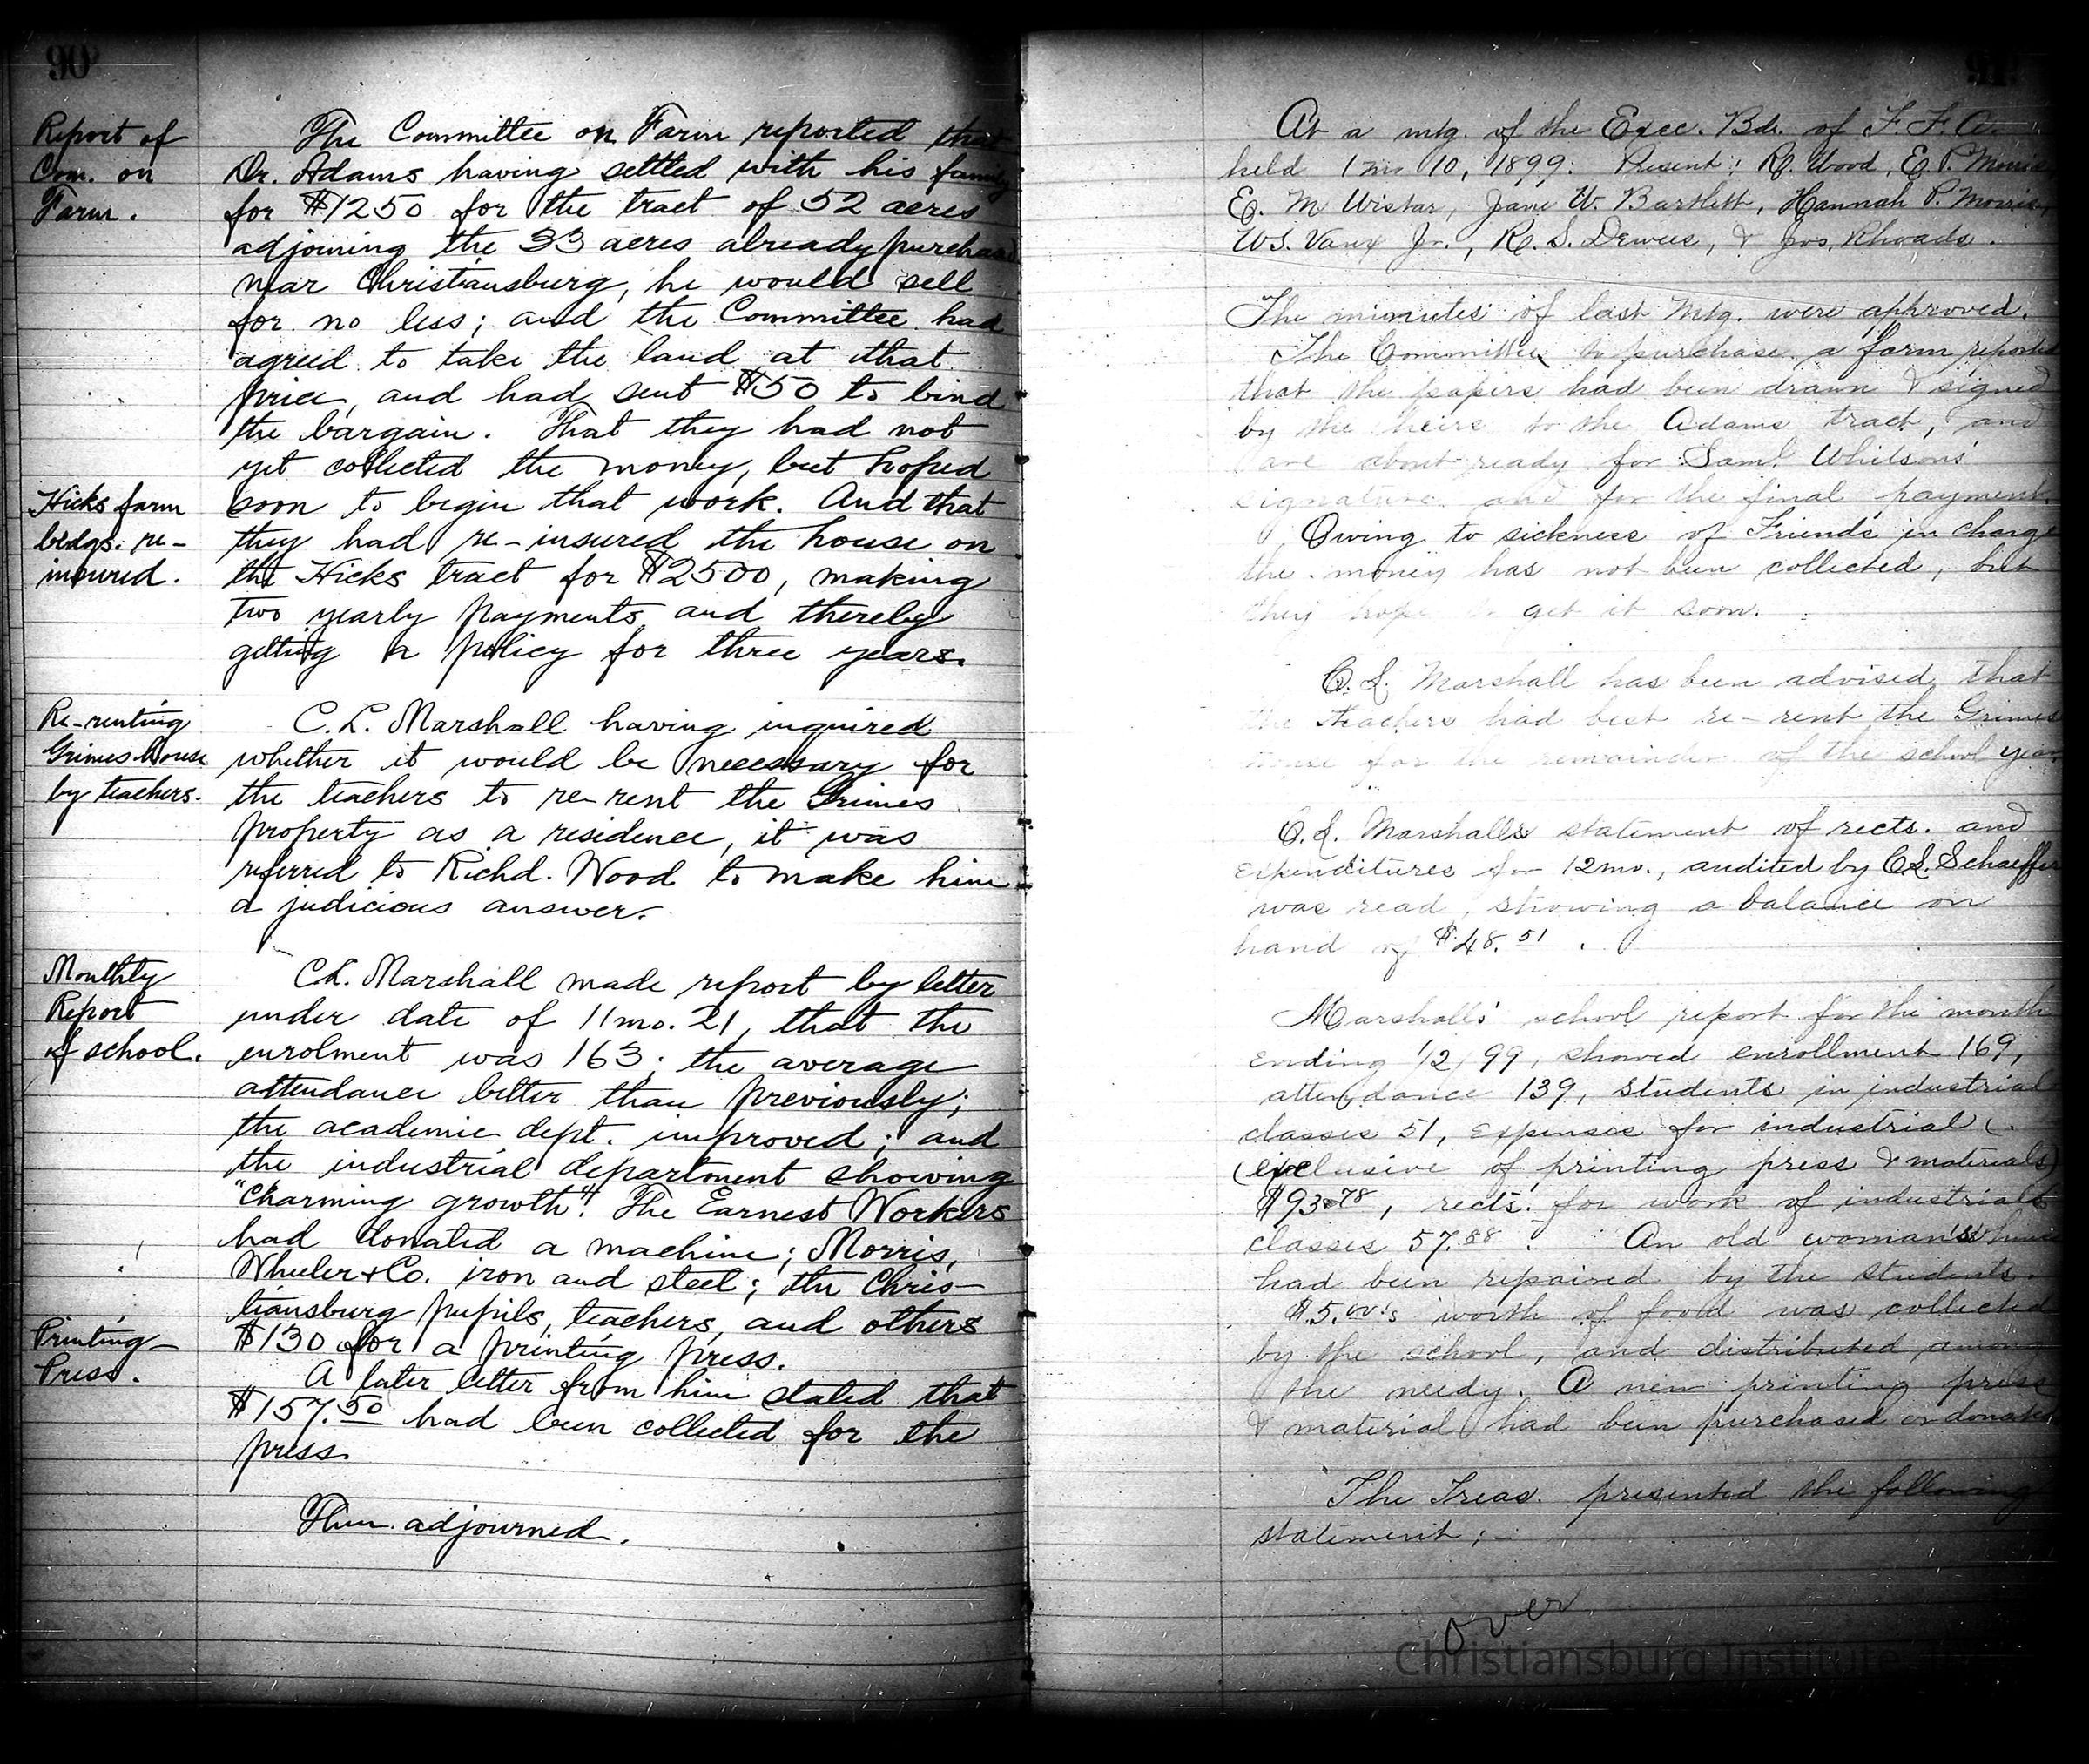 90
Report of
Com. on
Farm.
The Committee on Farm reported that
Dr. Adams having settled with his family
for $1250 for the tract of 52 acres
adjoining the 33 acres already purchased
near Christiansburg, he would sell
for no less; and the Committee had
agreed to take the land at that
price, and had sent $50 to bind
the bargain. That they had not
yet collected the money, but hoped
Hicks farm
bldgs. re-
insured.
soon to begin that work. And that
they had re-insured the house on
the Hicks tract for $2500, making
two yearly payments, and thereby
getting a policy for three years.
Re-renting
Grimes house
by teachers.
C. L. Marshall having inquired
whether it would be necessary for
the teachers to re-rent the Grimes
property as a residence, it was
referred to Richd. Wood to make him
a judicious answer.
Monthly
Report
of school.
C.L. Marshall made report by letter
under date of 11mo. 21, that the
enrolment was 163; the average
attendance better than previously;
the academic dept. improved; and
the industrial department showing
"charming growth". The Earnest Workers
had donated a machine; Morris,
Wheeler & Co. iron and steel; the Chris-
tiansburg pupils, teachers, and others
Printing-
Press.
$130 for a printing press.
A later letter from him stated that
$157.50 had been collected for the
press.
Then adjourned.
91
At a mtg. of the Exec. Bd. of F. F. A.
held 1 mo 10, 1899. Present: R. Wood, E. P. Morris,
E. M Wistar, Jane W. Bartlett, Hannah P. Morris,
W.S. Vaux Jr., R. S. Dewees, & Jos. Rhoads.
The minutes of last mtg. were approved.
The Committee to purchase a farm reports
that the papers had been drawn & signed
by the heirs to the Adams tract, and
are about ready for Saml. Whitson's
signature and for the final payment.
Owing to sickness of Friends in charge
the money has not been collected, but
they hope to get it soon.
C. L. Marshall has been advised that
the teachers had best re-rent the Grimes
house for the remainder of the school year.
C. L. Marshalls statement of rects. and
expenditures for 12mo., audited by C.L. Schaeffer
was read, showing a balance on
hand of $48.51.
Marshalls' school report for the month
ending 1/2/99, showed enrollment 169,
attendance 139, students in industrial
classes 51, expenses for industrial
(exclusive of printing press & materials)
$93.78, rects. for work of industrial
classes 57.88. An old woman's
had been repaired by the students.
$5.00's worth of food was collected
by the school, and distributed among
the needy. A new printing press
& material had been purchased or donated
The Treas. presented the following
statement:-
over
Christiansburg Institute